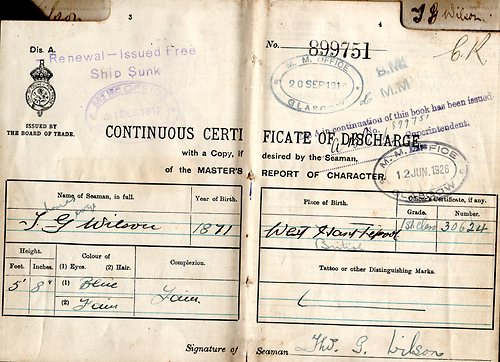 3
4
T G Wilson
C.R
Dis. A.
No. 899751
Renewal - Issued Free
Ship Sunk
M.M. OFFICE
20 SEP 191
GLASGOW
M.M
ISSUED BY
THE BOARD OF TRADE.
A in continuation of this book has been issued.
No. 899751
Superintendent.
CONTINUOUS CERTIFICATE OF DISCHARGE
with a Copy, if desired by the Seaman,
of the MASTER'S REPORT OF CHARACTER.
M.M. OFFICE
12 JUN. 1926
GLASGOW
Name of Seaman, in full.
Year of Birth.
Place of Birth.
Officer's Certificate, if any.
Grade.
Number.
T G Wilson
1871
West Hartlepool
British
1st Class
30624
Height.
Feet.
Inches.
Colour of
(1) Eyes.
(2) Hair.
Complexion.
Tattoo or other Distinguishing Marks.
5'
8"
(1) Blue
(2) Fair
Fair
Signature of Seaman
Thos. G. Wilson